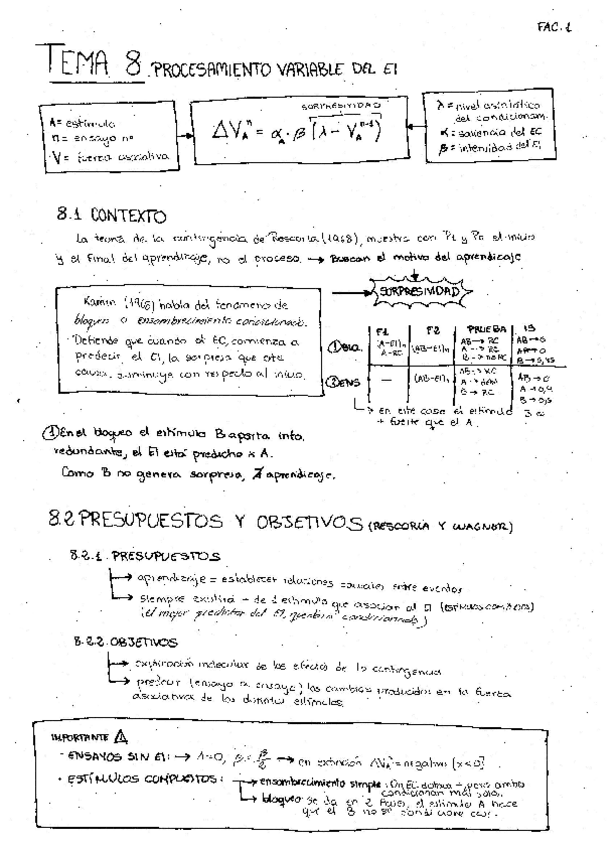 FAC. 1
TEMA 8. PROCESAMIENTO VARIABLE DEL EI
A = estímulo
n = ensayo nº
V = fuerza asociativa
SORPRESIVIDAD
ΔV_A^n = α_A · β (λ - V_A^{n-1})
λ = nivel asintótico
del condicionam.
α = saliencia del EC
β = intensidad del EI
8.1 CONTEXTO
La teoría de la contingencia de Rescorla (1968), muestra con P1 y P0 el inicio
y el final del aprendizaje, no el proceso. → Buscan el motivo del aprendizaje
SORPRESIVIDAD
Kamin (1968) habla del fenómeno de
bloqueo o ensombrecimiento condicionado.
Defiende que cuando el EC, comienza a
predecir el EI, la sorpresa que este
causa disminuye con respecto al inicio.
F1 F2 PRUEBA
① BLO. (A-EI)n A-RC (AB-EI)n AB → RC A → RC B → no RC
② ENS — (AB-EI)n
→ en este caso el estímulo
+ fuerte que el A.
① En el bloqueo el estímulo B aporta info.
redundante, el EI está predicho x A.
Como B no genera sorpresa, ∄ aprendizaje.
8.2 PRESUPUESTOS Y OBJETIVOS (RESCORLA Y WAGNER)
8.2.1. PRESUPUESTOS
→ aprendizaje = establecer relaciones causales entre eventos
→ siempre existirá + de 1 estímulo que asociar al EI
(el mejor predictor del EI, quedará condicionado)
8.2.2. OBJETIVOS
→ explicación molecular de los efectos de la contingencia
→ predecir (ensayo a ensayo) los cambios producidos en la fuerza
asociativa de los distintos estímulos.
IMPORTANTE ⚠
· ENSAYOS SIN EI: → λ=0, → en extinción ΔV_A = negativo (x<0)
· ESTÍMULOS COMPUESTOS: → ensombrecimiento simple: Un EC domina + pero ambos
condicionan más solos.
→ bloqueo se da en 2 fases, el estímulo A hace
que el B no se condicione casi.